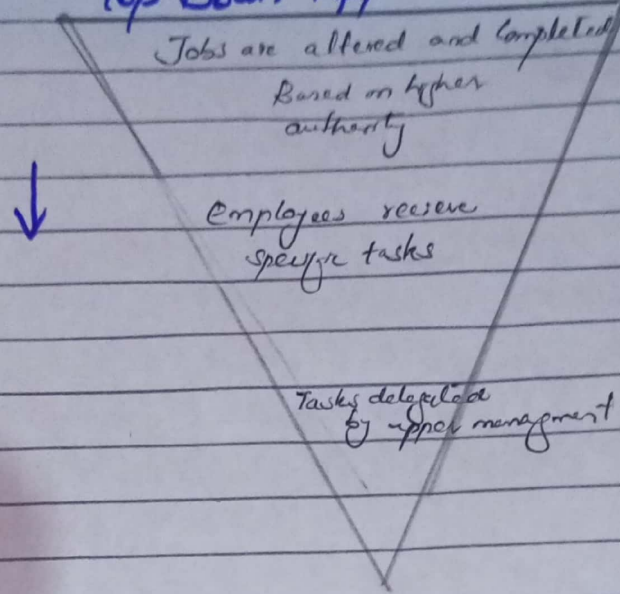 Top Down
Jobs are altered and Completed
Based on higher
authority
Employees recieve
specific tasks
Tasks delegated
by upper managment